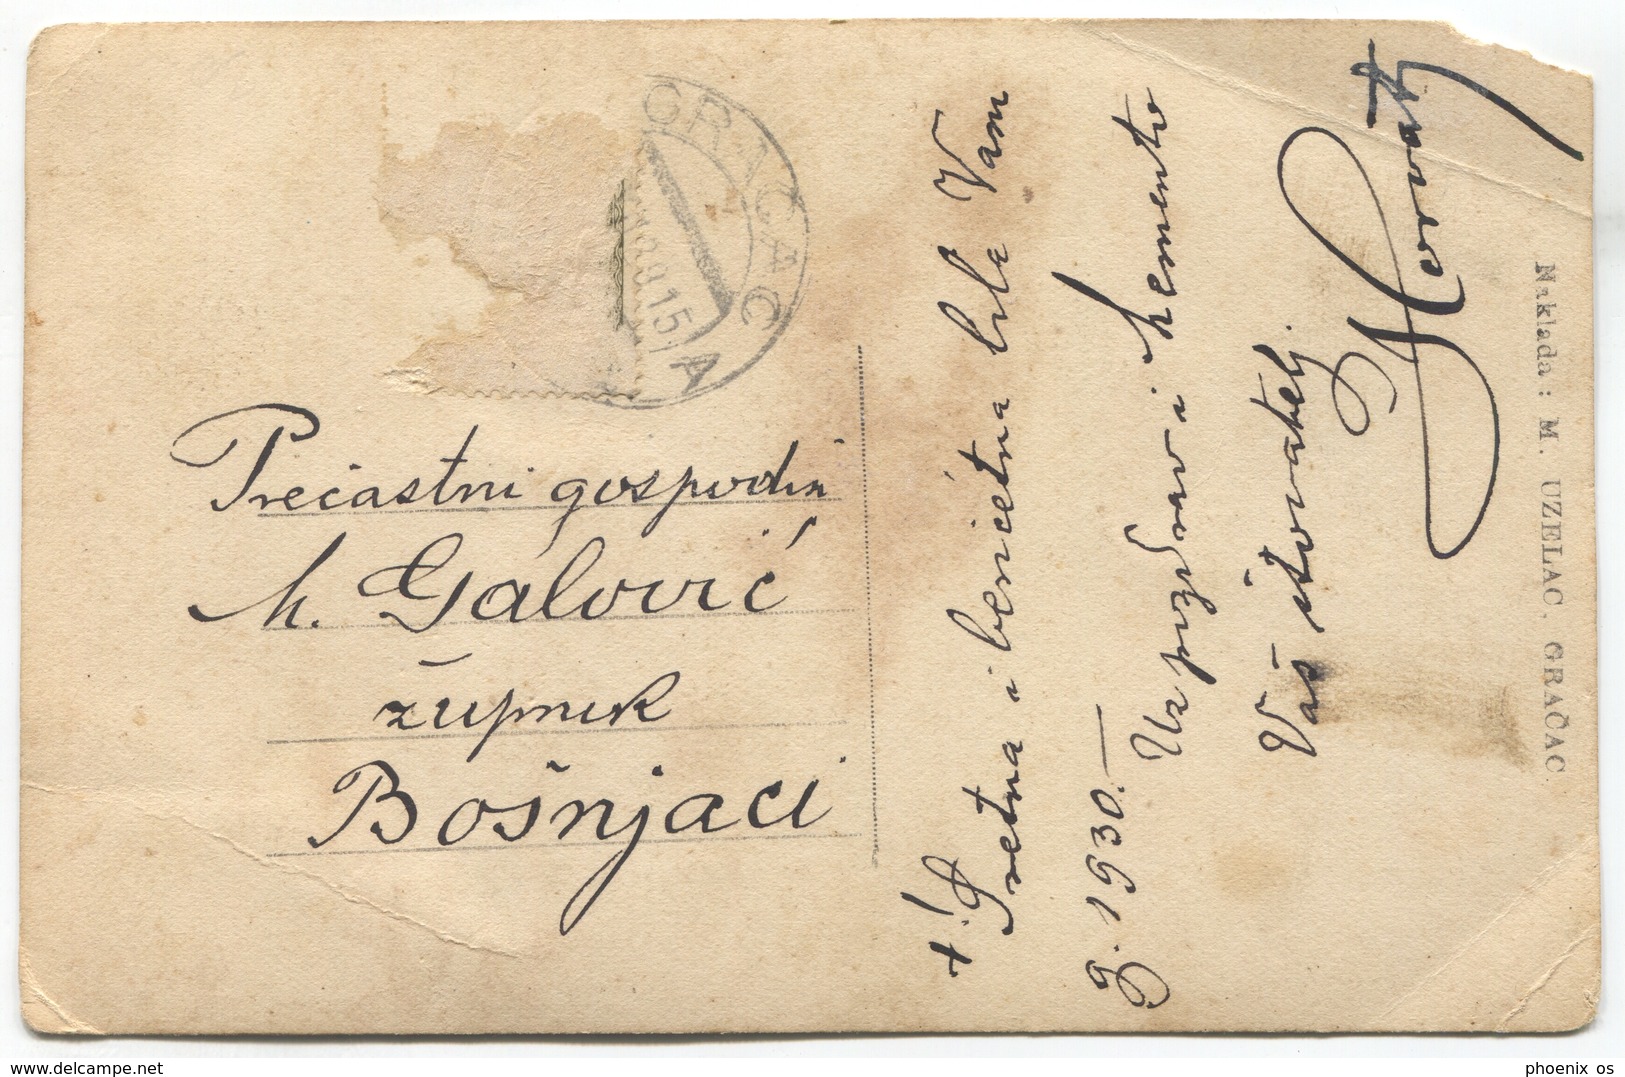 GRAČAC
GRAČAC
A
Prečastni gospodin
M. Galović
župnik
Bošnjaci
+! Sretna i beričetna bila Vam
g. 1930. — Uz pozdrav i memento
Vaš štovatelj
Horvath
Naklada: M. UZELAC, GRAČAC.
phoenix os